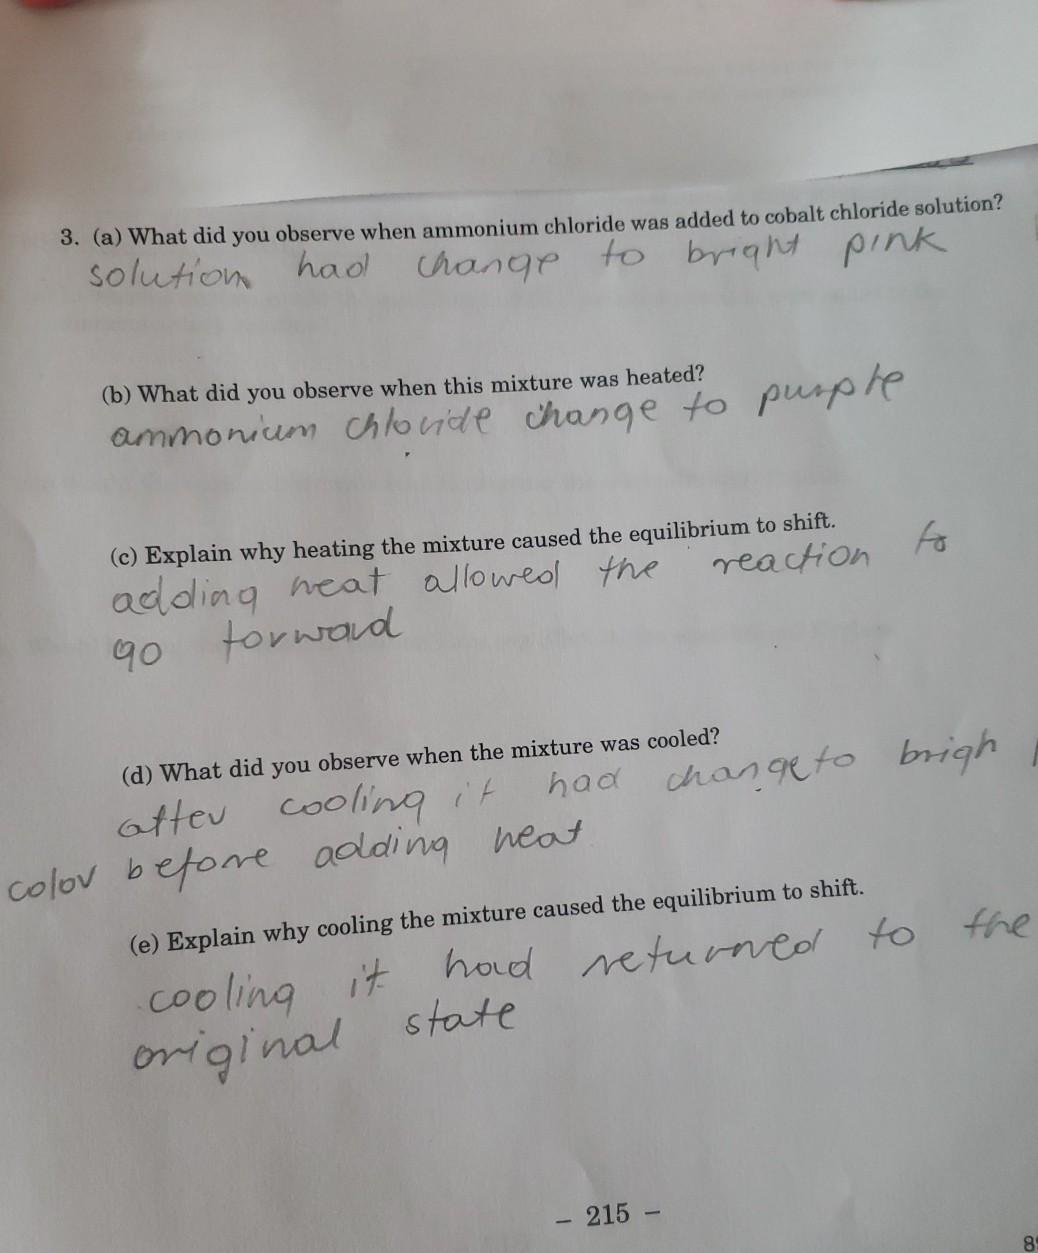 3. (a) What did you observe when ammonium chloride was added to cobalt chloride solution?
solution had change to bright pink
(b) What did you observe when this mixture was heated?
ammonium chloride change to purple
(c) Explain why heating the mixture caused the equilibrium to shift.
adding heat allowed the reaction to
go forward
(d) What did you observe when the mixture was cooled?
after cooling it had change to brigh
color before adding heat
(e) Explain why cooling the mixture caused the equilibrium to shift.
cooling it had returned to the
original state
- 215 -